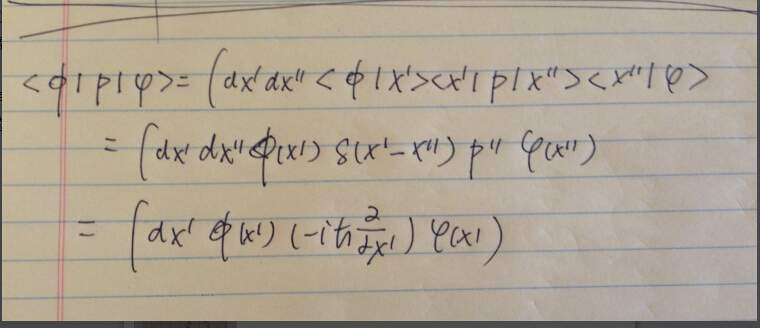 <ϕ|p|φ> = ∫dx'dx'' <ϕ|x'><x'|p|x''><x''|φ>
= ∫dx' dx'' ϕ(x') δ(x'-x'') p'' φ(x'')
= ∫dx' ϕ(x') (-iħ ∂/∂x') φ(x')